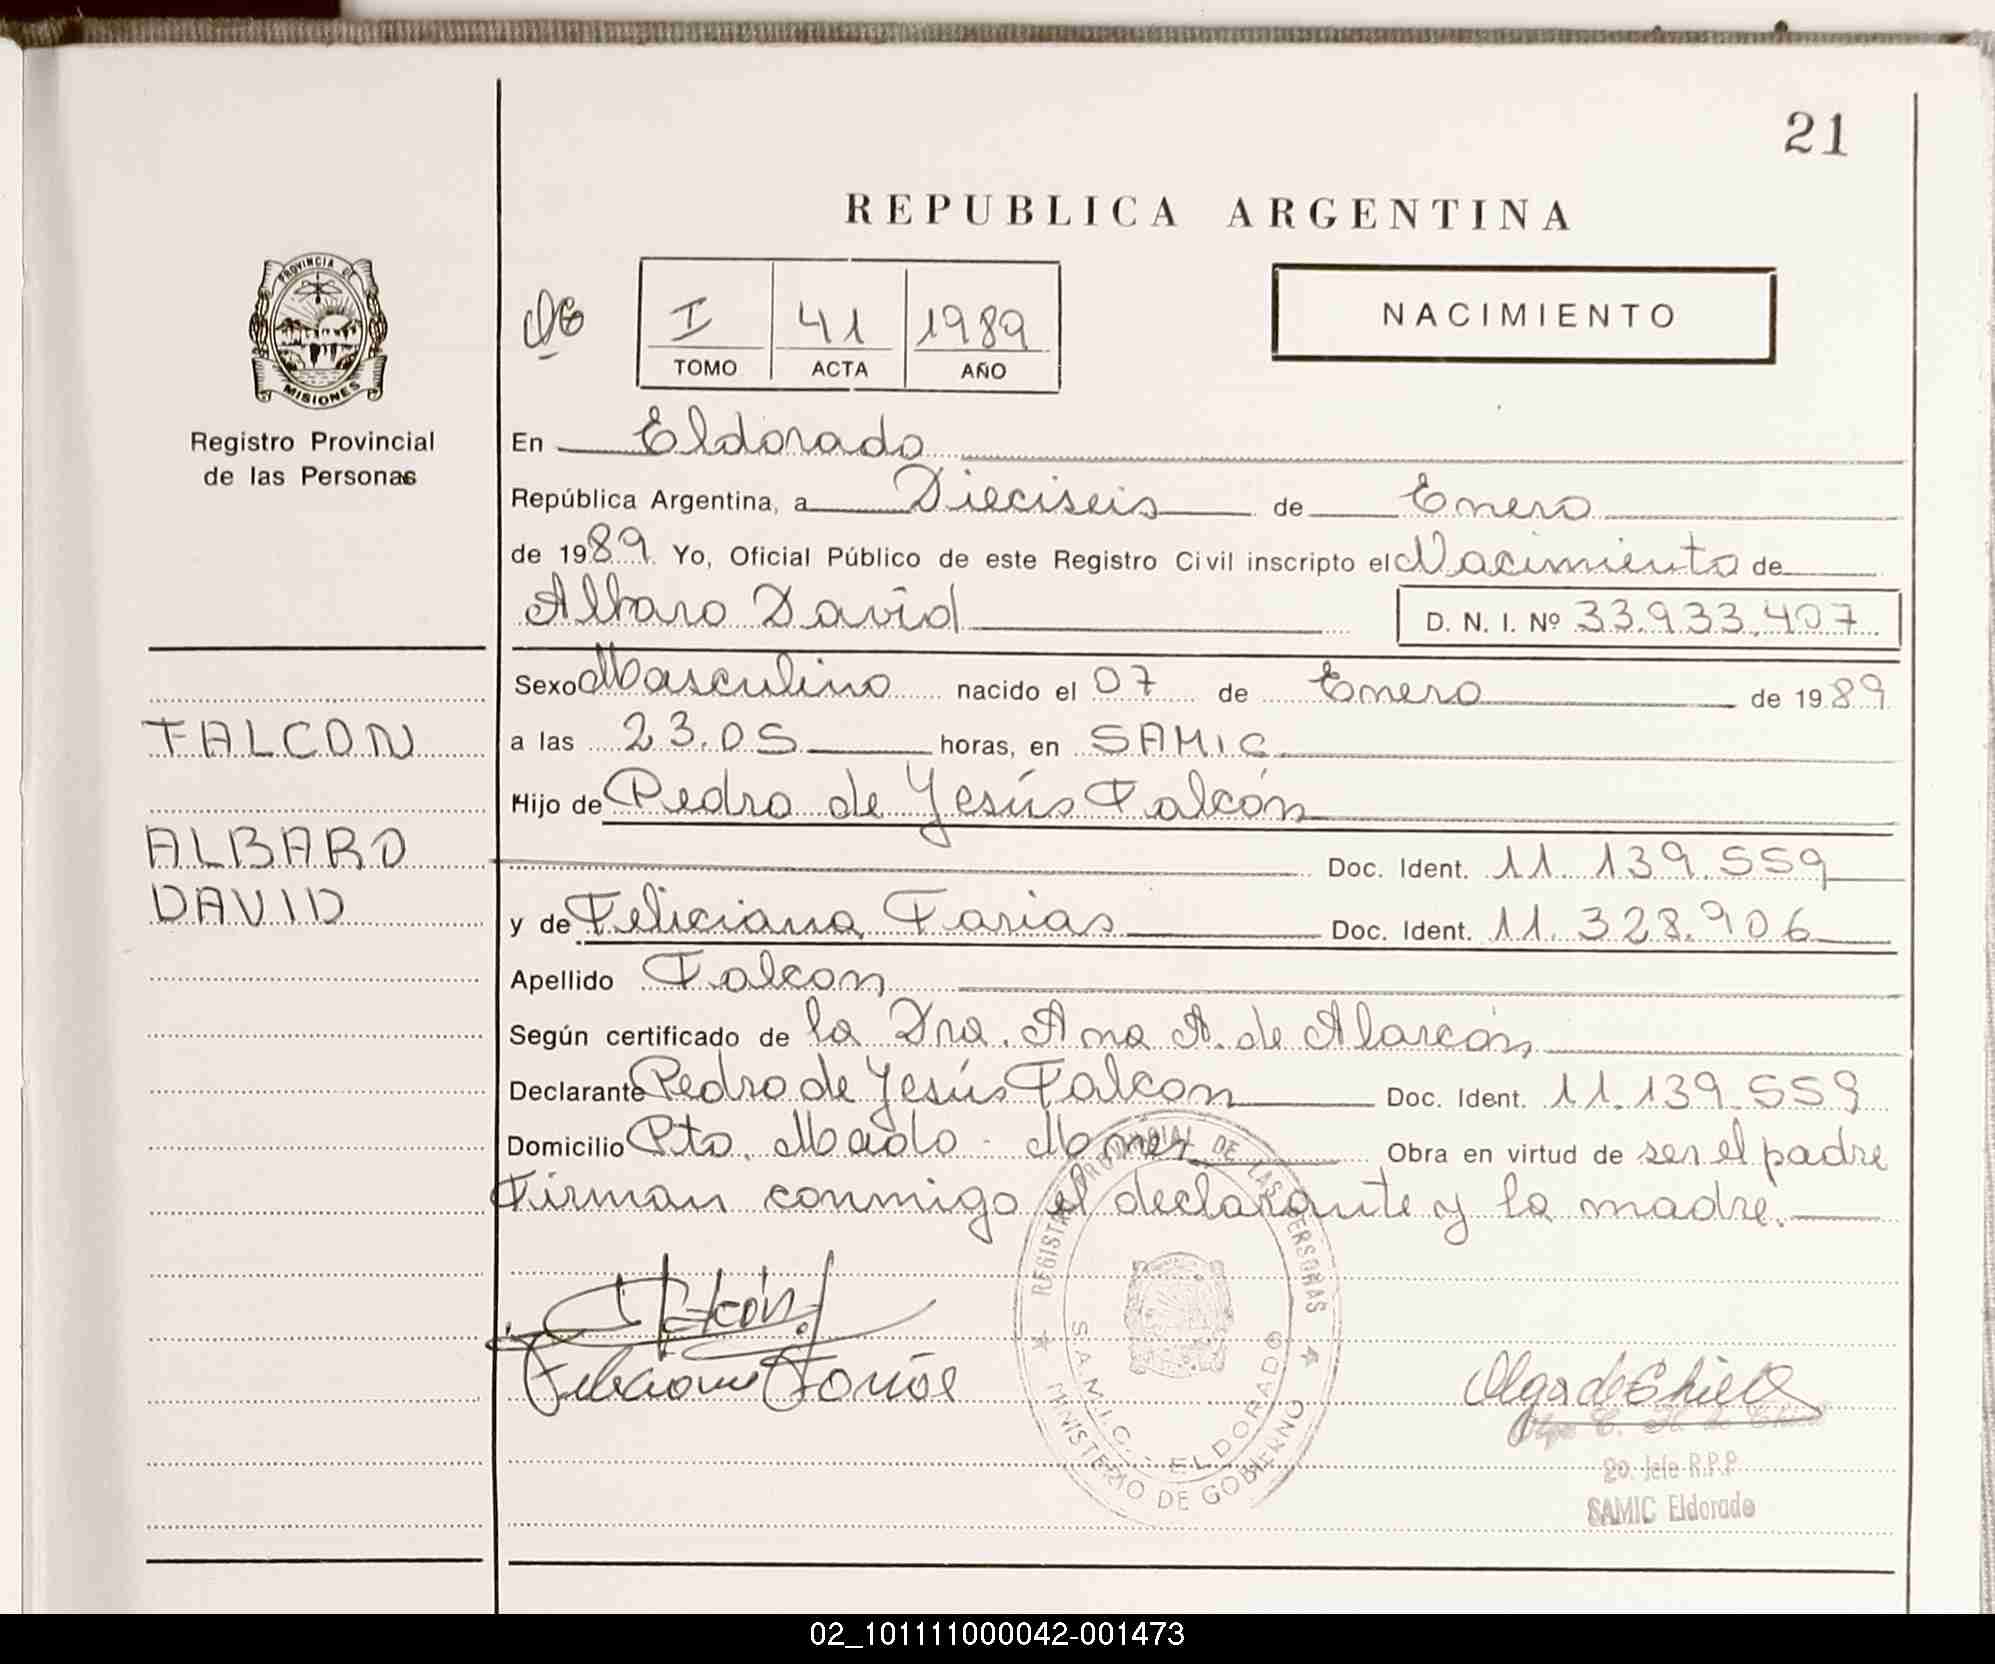 21
REPUBLICA ARGENTINA
PROVINCIA DE
MISIONES
Registro Provincial
de las Personas
I 41 1989
TOMO ACTA AÑO
NACIMIENTO
En Eldorado
República Argentina, a Dieciseis de Enero
de 1989 Yo, Oficial Público de este Registro Civil inscripto el Nacimiento de
Albaro David D. N. I. Nº 33.933.407
Sexo Masculino nacido el 07 de Enero de 1989
FALCON
a las 23.05 horas, en SAMIC
Hijo de Pedro de Jesús Falcón
ALBARO
Doc. Ident. 11.139.559
DAVID
y de Feliciana Farias Doc. Ident. 11.328.906
Apellido Falcon
Según certificado de la Dra. Ana A. de Alarcón
Declarante Pedro de Jesús Falcon Doc. Ident. 11.139.559
Domicilio Pto. Mado - Mnes Obra en virtud de ser el padre
Firman conmigo el declarante y la madre.
REGISTRO PROVINCIAL DE LAS PERSONAS
S.A.M.I.C. - ELDORADO
MINISTERIO DE GOBIERNO
Falcón
Feliciana Farías
Olga de
2o. Jefe R.P.P.
SAMIC Eldorado
02_101111000042-001473